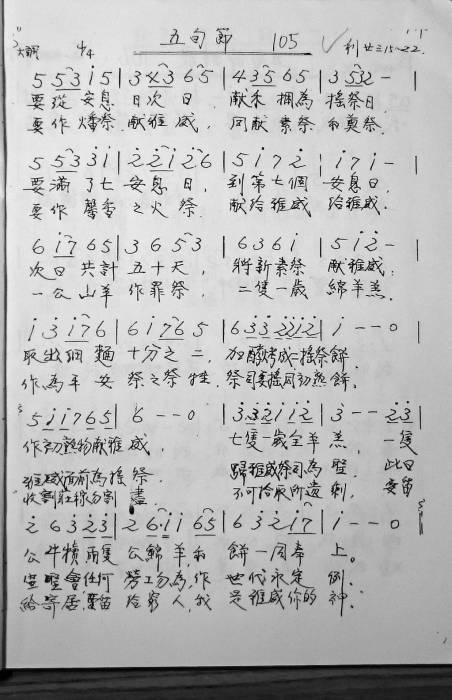 五旬節 105 ✓ 利廿三15-22.
大調 4/4
5 5 3 i 5 | 3 4 3 6 5 | 4 3 5 6 5 | 3 5 3 2 - |
要從安息日次日, 献禾捆為搖祭日.
要作燔祭献雅威, 同献素祭和奠祭.
5 5 3 3 i | 2 2 i 2 6 | 5 i 7 2 | i 7 i - |
要滿了七安息日, 到第七個安息日.
要作馨香之火祭. 献給雅威給雅威.
6 i 7 6 5 | 3 6 5 3 | 6 3 6 i | 5 i 2 - |
次日共計五十天, 將新素祭献雅威;
一公山羊作罪祭. 二隻一歲綿羊羔.
i 3 i 7 6 | 6 i 7 6 5 | 6 3 3 2 2 i 2 | i - - 0
取出細麵十分之二, 加酵烤成一搖祭餅.
作為平安祭之祭牲. 祭司要搖同初熟餅.
5 i i 7 6 5 | 6 - - 0 | 3 3 2 i i 2 | 3 - - 2 3 |
作初熟物献雅威. 七隻一歲全羊羔, 一隻
雅威面前為搖祭. 歸雅威祭司為聖. 此日
收割莊稼勿割盡. 不可拾取所遺剩, 要留
2 6 3 2 3 | 2 6 i i 6 5 | 6 3 2 i 7 | i - - 0
公牛犢兩隻公綿羊, 和餅一同奉上。
宣聖會任何勞工勿為, 作世代永定例.
給寄居, 要留給窮人, 我是雅威你的神.